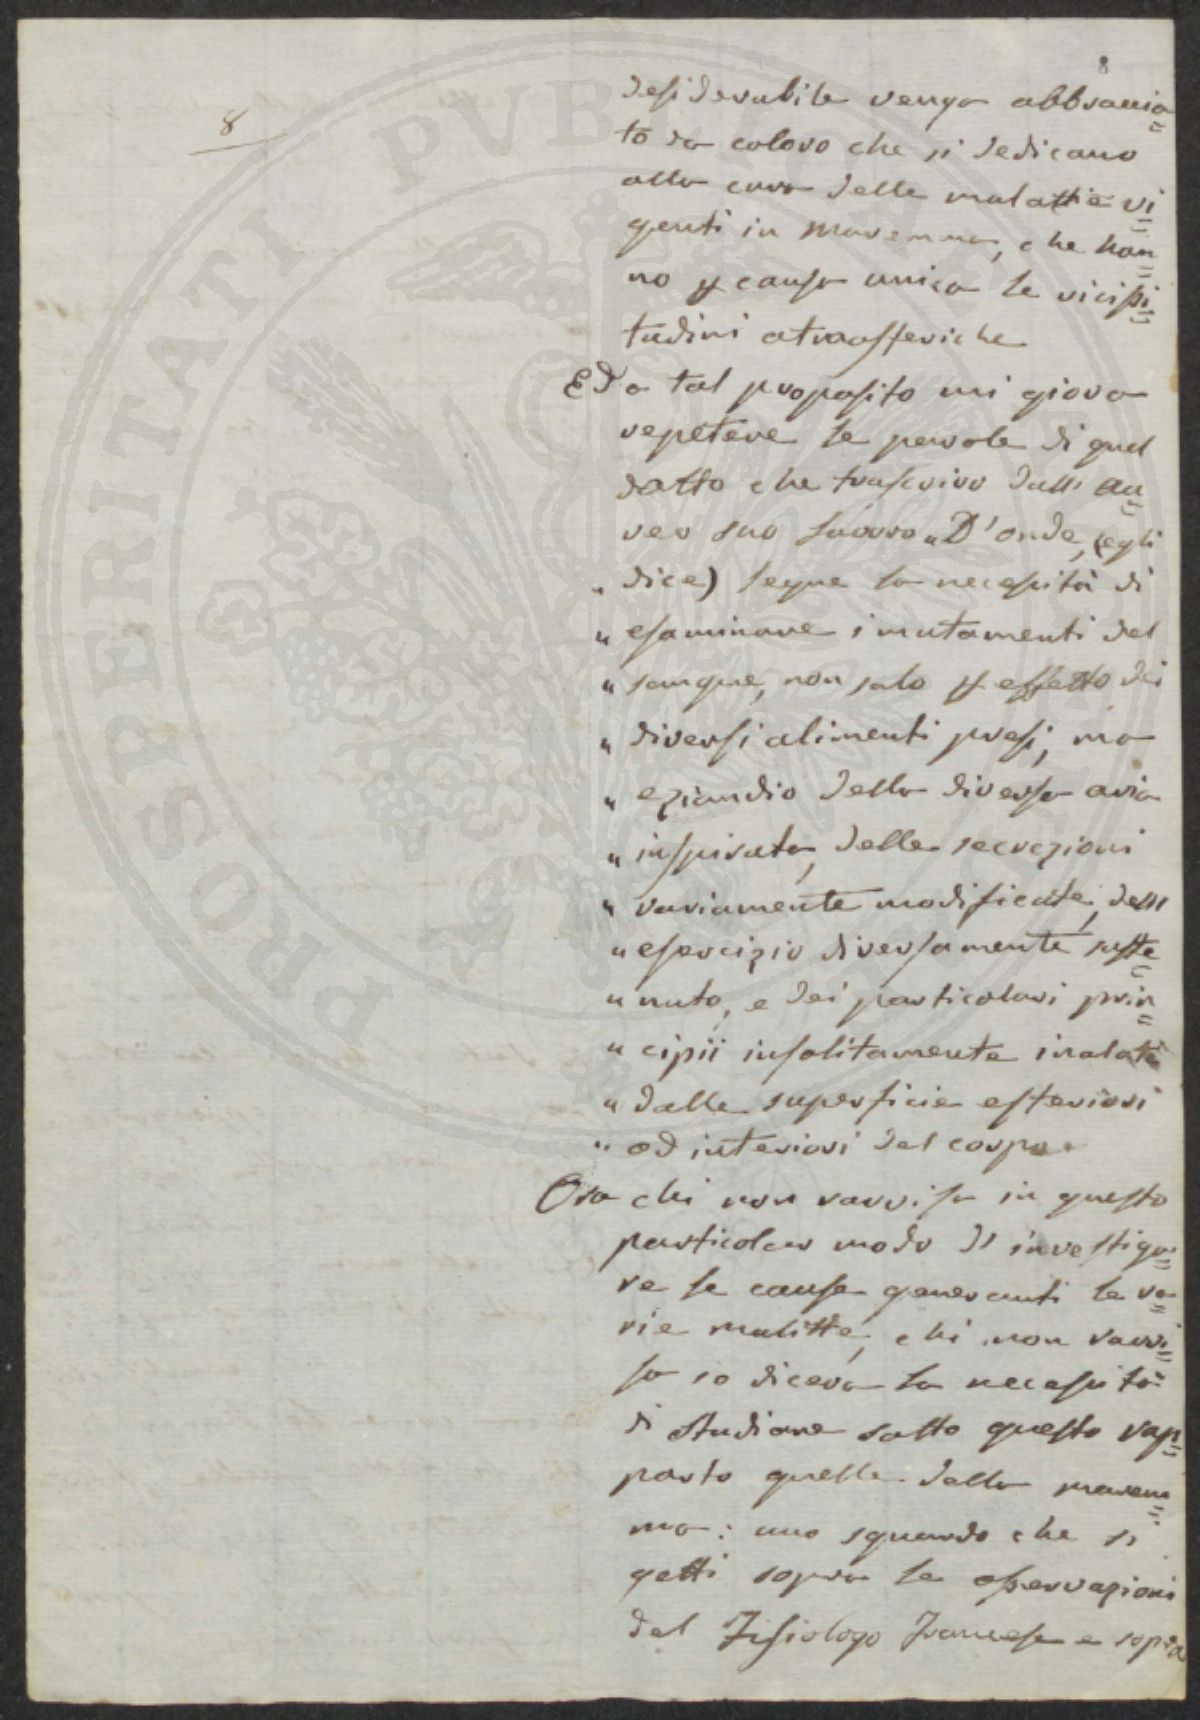 8
8
desiderabile venga abbraccia=
to da coloro che si dedicano
alla cura delle malattie vi=
genti in Maremma, che han=
no p causa unica le vicissi=
tudini atmosferiche
Ed a tal proposito mi giova
repetere le parole di quel
dotto che trascrivo dall' au=
reo suo lavoro „ D'onde, (egli
„ dice) segue la necessità di
„ esaminare i mutamenti del
„ sangue, non solo p effetto dei
„ diversi alimenti presi, ma
„ eziandio della diversa aria
„ inspirata, delle secrezioni
„ variamente modificate, dell'
„ esercizio diversamente soste=
„ nuto, e dei particolari prin=
„ cipii insolitamente inalati
„ dalle superficie esteriori
„ od interiori del corpo.
Ora chi non ravvisa in questo
particolar modo di investiga=
re le cause generanti le va=
rie malattie, chi non ravvi=
sa io diceva la necessità
di studiare sotto questo rap=
porto quelle della marem=
ma: uno sguardo che si
getti sopra le osservazioni
del Fisiologo Francese e sopra
PROSPERITATI PVBLICAE